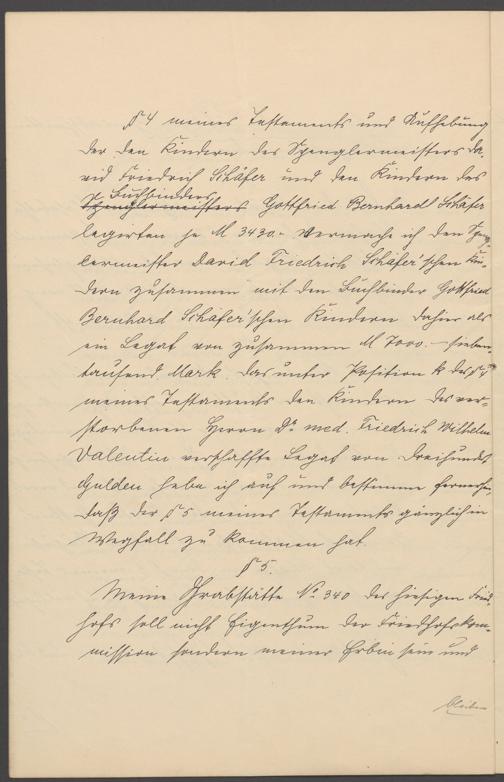 § 4 meines Testaments und Aufhebung
der den Kindern des Spenglermeisters Da-
vid Friedrich Schäfer und den Kindern des
Buchbinders
Spenglermeisters Gottfried Bernhard Schäfer
legirten je M 3430.- vermache ich den Spen-
lermeister David Friedrich Schäfer'schen Kin-
dern zusammen mit den Buchbinder Gottfried
Bernhard Schäfer'schen Kindern dahier als
ein Legat von zusammen M 7000.- sieben-
tausend Mark. Das unter Position k des § 4
meines Testaments den Kindern des ver-
storbenen Herrn Dr. med. Friedrich Wilhelm
Valentin verschaffte Legat von dreihundert
Gulden hebe ich auf und bestimme fernerhin,
daß der § 5 meines Testaments gänzlich in
Wegfall zu kommen hat.
§ 5.
Meine Grabstätte No. 340 des hiesigen Fried-
hofs soll nicht Eigenthum der Friedhofskom-
mission sondern meiner Erbin sein und
bleiben